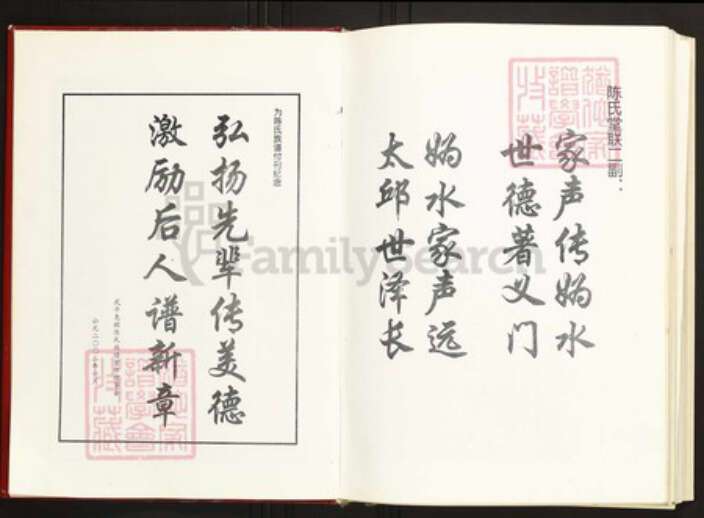 为陈氏族谱付刊纪念
弘扬先辈传美德
激励后人谱新章
猶他家
譜學會
陈氏堂联二副：
家声传妫水
世德著义门
妫水家声远
太邱世泽长
猶他家
譜學會
FamilySearch